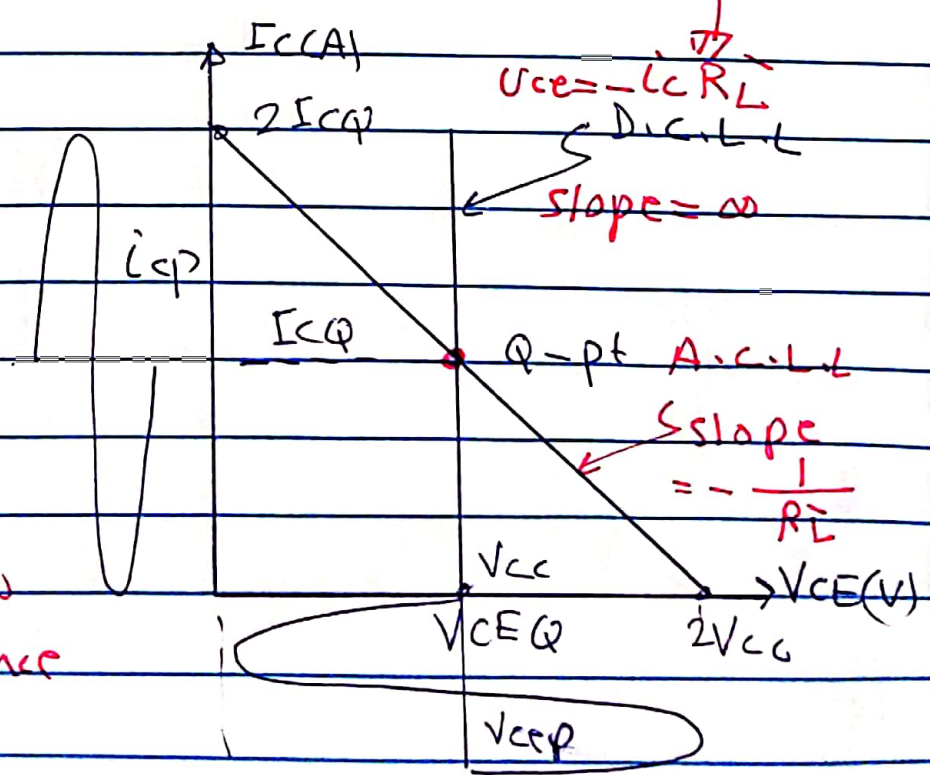 Ic(A)
Vce=-ic RL'
2ICQ
D.C.L.L
slope=∞
icp
ICQ
Q-pt A.C.L.L
slope
= - 1/RL'
VCC
VCE(V)
VCEQ
2VCC
nce
Vcep